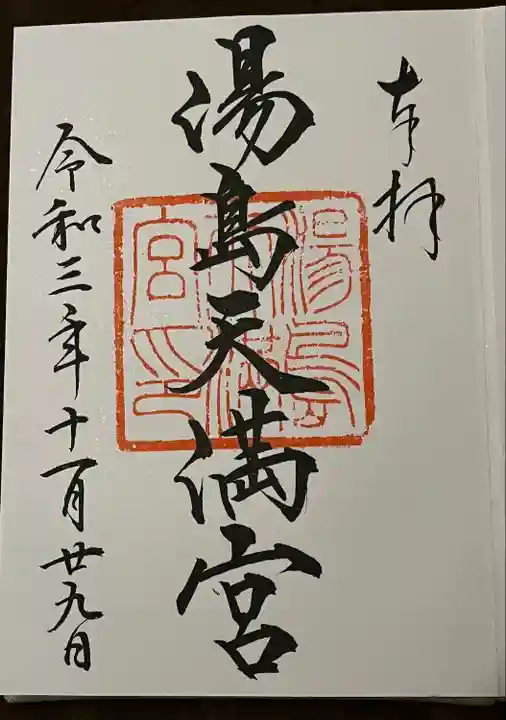 奉拝
湯島天満宮
湯島
天満
宮印
令和三年十一月廿九日